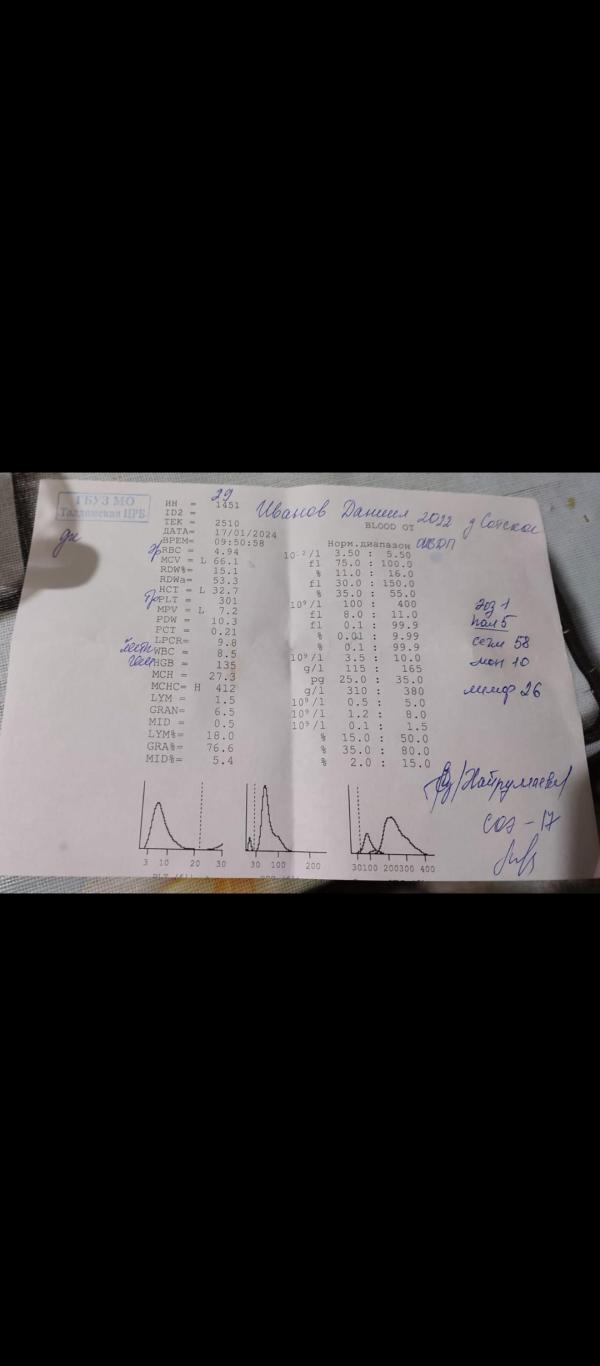 ГБУЗ МО
Талдомская ЦРБ
29
Иванов Даниил 2022
НН = 1451
ID2 =
ТЕК = 2510
BLOOD OT
ДАТА= 17/01/2024
ВРЕМ= 09:50:58
Норм.диапазон
RBC = 4.94 /l 3.50 : 5.50
MCV = L 66.1 fl 75.0 : 100.0
RDW%= 15.1 % 11.0 : 16.0
RDWa= 53.3 fl 30.0 : 150.0
HCT = L 32.7 % 35.0 : 55.0
PLT = 301 10⁹/l 100 : 400
MPV = L 7.2 fl 8.0 : 11.0
PDW = 10.3 fl 0.1 : 99.9
PCT = 0.21 % 0.01 : 9.99
LPCR= 9.8 % 0.1 : 99.9
WBC = 8.5 10⁹/l 3.5 : 10.0
HGB = 135 g/l 115 : 165
MCH = 27.3 pg 25.0 : 35.0
MCHC= H 412 g/l 310 : 380
LYM = 1.5 10⁹/l 0.5 : 5.0
GRAN= 6.5 10⁹/l 1.2 : 8.0
MID = 0.5 10⁹/l 0.1 : 1.5
LYM%= 18.0 % 15.0 : 50.0
GRA%= 76.6 % 35.0 : 80.0
MID%= 5.4 % 2.0 : 15.0
эоз 1
пал 5
сегм 58
мон 10
лимф 26
соэ - 17
3 10 20 30
30 100 200
30100 200300 400